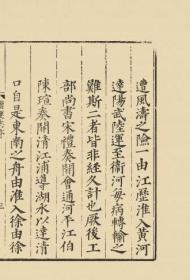 遭風濤之險一由江歷淮入黃河
達陽武陸運至衛河每病轉輸之
難斯二者皆非經久計也厥後工
部尚書宋禮奏開會通河平江伯
陳瑄奏開清江浦導湖水入達清
口自是東南之舟由淮入徐由徐